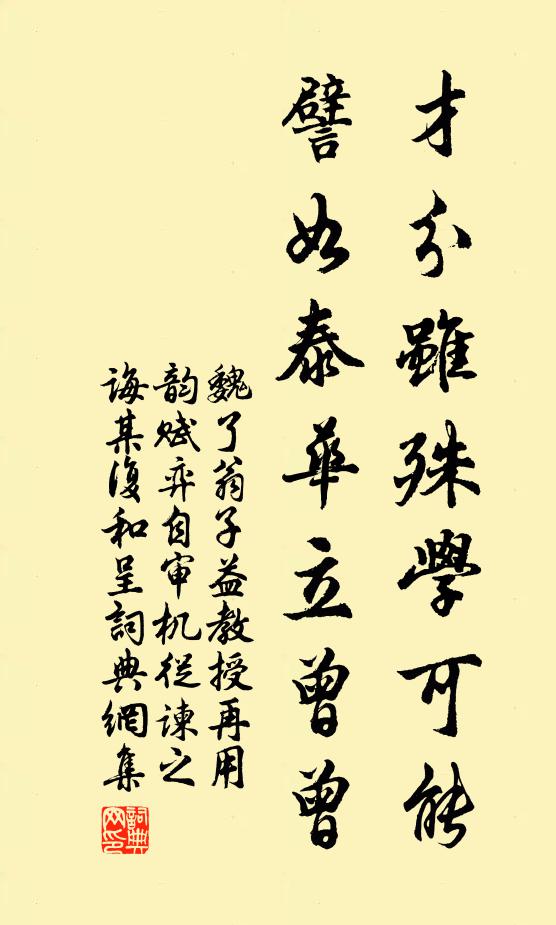 才分雖殊學可能
譬如泰華立曾曾
魏了翁子益教授再用
韵賦弈自审机從諫之
诲某復和呈詞典網集
詞典
网印